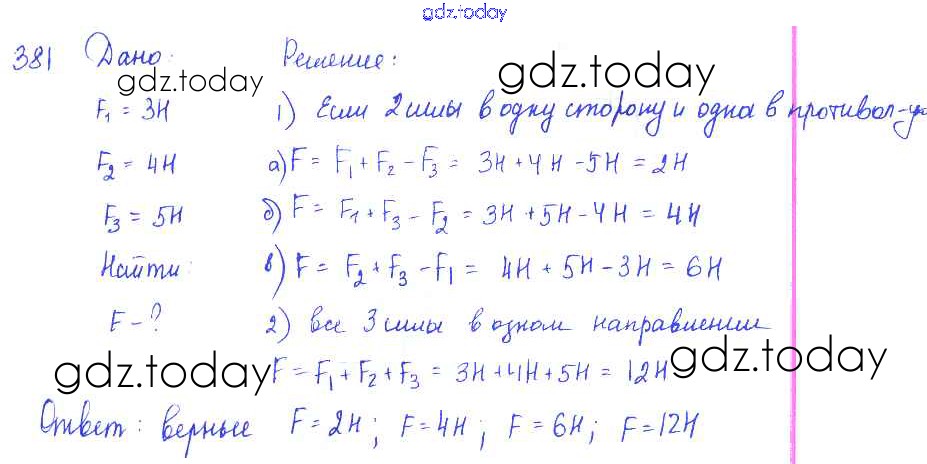 gdz.today
381 Дано: Решение:
gdz.today gdz.today
F₁ = 3Н 1) Если 2 силы в одну сторону и одна в противоп-ую
F₂ = 4Н а) F = F₁ + F₂ - F₃ = 3Н + 4Н - 5Н = 2Н
F₃ = 5Н б) F = F₁ + F₃ - F₂ = 3Н + 5Н - 4Н = 4Н
Найти: в) F = F₂ + F₃ - F₁ = 4Н + 5Н - 3Н = 6Н
F - ? 2) все 3 силы в одном направлении
gdz.today gdz.today
F = F₁ + F₂ + F₃ = 3Н + 4Н + 5Н = 12Н
Ответ: верные F = 2Н; F = 4Н; F = 6Н; F = 12Н